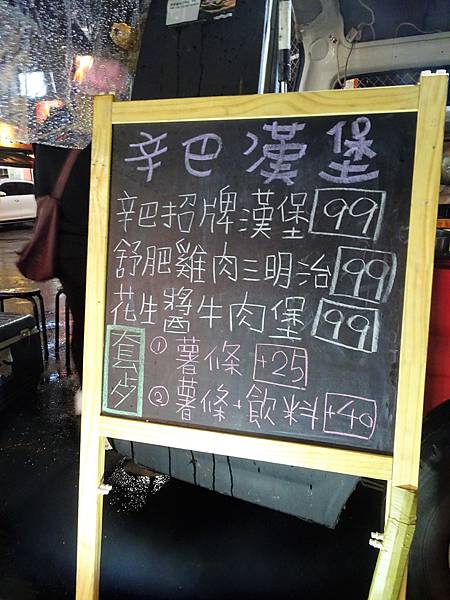 辛巴漢堡
辛巴招牌漢堡 99
舒肥雞肉三明治 99
花生醬牛肉堡 99
套歺 ① 薯條 +25
② 薯條+飲料 +40